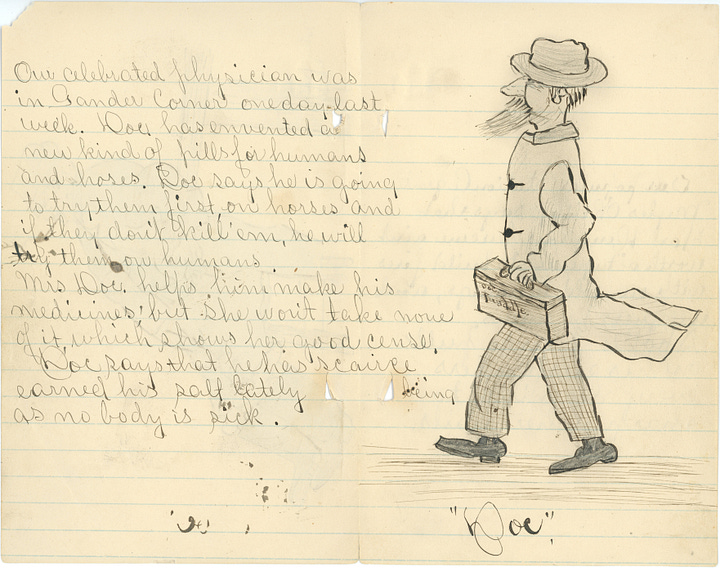 Our celebrated physician was
in Gander Corner one day last
week. Doc has envented a
new kind of pills for humans
and hoses. Doc says he is going
to try them first on horses and
if they don't kill em, he will
try them on humans
Mrs Doc helps him make his
medicines, but she won't take none
of it which shows her good cense.
Doc says that he has scairce
earned his salt lately being
as no body is sick.
"Doc"